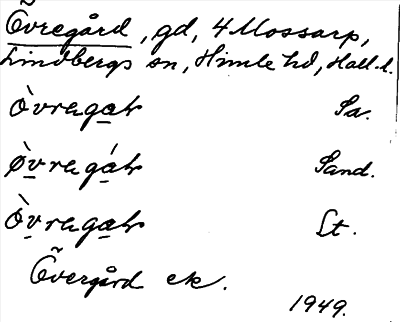 Övregård, gd, 4 Mossarp,
Lindbergs sn, Himle hd, Hall. l.
òvregat Sa.
ø̀vregát Sand.
òvregat Lt.
Övergård ek.
1949.